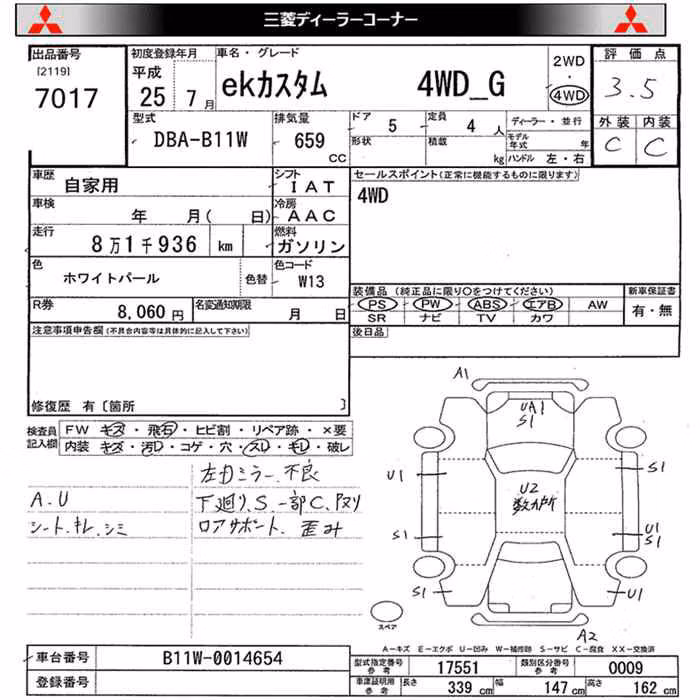 三菱ディーラーコーナー
出品番号
[2119]
7017
初度登録年月
平成
25 7月
車名・グレード
ekカスタム 4WD_G
2WD
・
4WD
評価点
3.5
外装 内装
C C
型式
DBA-B11W
排気量
659
CC
ドア 5
定員 4人
ディーラー・並行
形状
積載 kg
モデル年式 年
ハンドル 左・右
車歴
自家用
シフト
IAT
セールスポイント(正常に機能するものに限ります)
4WD
車検
年 月( 日)
冷房
AAC
走行
8万1千936 km
燃料
ガソリン
色
ホワイトパール
色替
色コード
W13
装備品(純正品に限り〇をつけてください)
新車保証書
PS PW ABS エアB AW
有・無
SR ナビ TV カワ
R券
8,060円
名変通知期限
月 日
注意事項申告欄(不具合内容等は具体的に記入して下さい)
後日品
修復歴 有〔箇所 〕
検査員
記入欄
FW キズ・飛石・ヒビ割・リペア跡・×要
内装 キズ・汚レ・コゲ・穴・スレ・キレ・破レ
左Dミラー不良
A.U
下廻りS.一部C.
シート.キレ.シミ
ロアサポート.歪み
A1
UA1
S1
U1
S1
U2
数カ所
S1
U1
S1
S1
U1
A2
スペア
A-キズ E-エクボ U-凹み W-補修跡 S-サビ C-腐食 XX-交換済
車台番号
B11W-0014654
型式指定番号
参考
17551
類別区分番号
参考
0009
登録番号
車庫証明用
参考
長さ 339 cm
幅 147 cm
高さ 162 cm